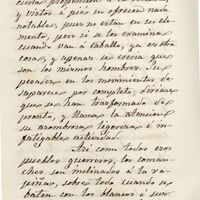 cierta propension á la
y vistos á pié no ofrecen nada
notable, pues no estan en su ele-
mento, pero si se les examina
cuando van á caballo, ya es otra
cosa, y apenas se creeria que
son los mismos hombres. Su
pesadez en los movimientos de-
saparece por completo, diríase
que se han trasformado de
pronto, y llama la atencion
su asombrosa ligereza é in-
fatigable actividad.
Así como todos los
pueblos guerreros, los coman-
ches son inclinados á la ra-
piña, sobre todo cuando se
baten con los blancos ó sus